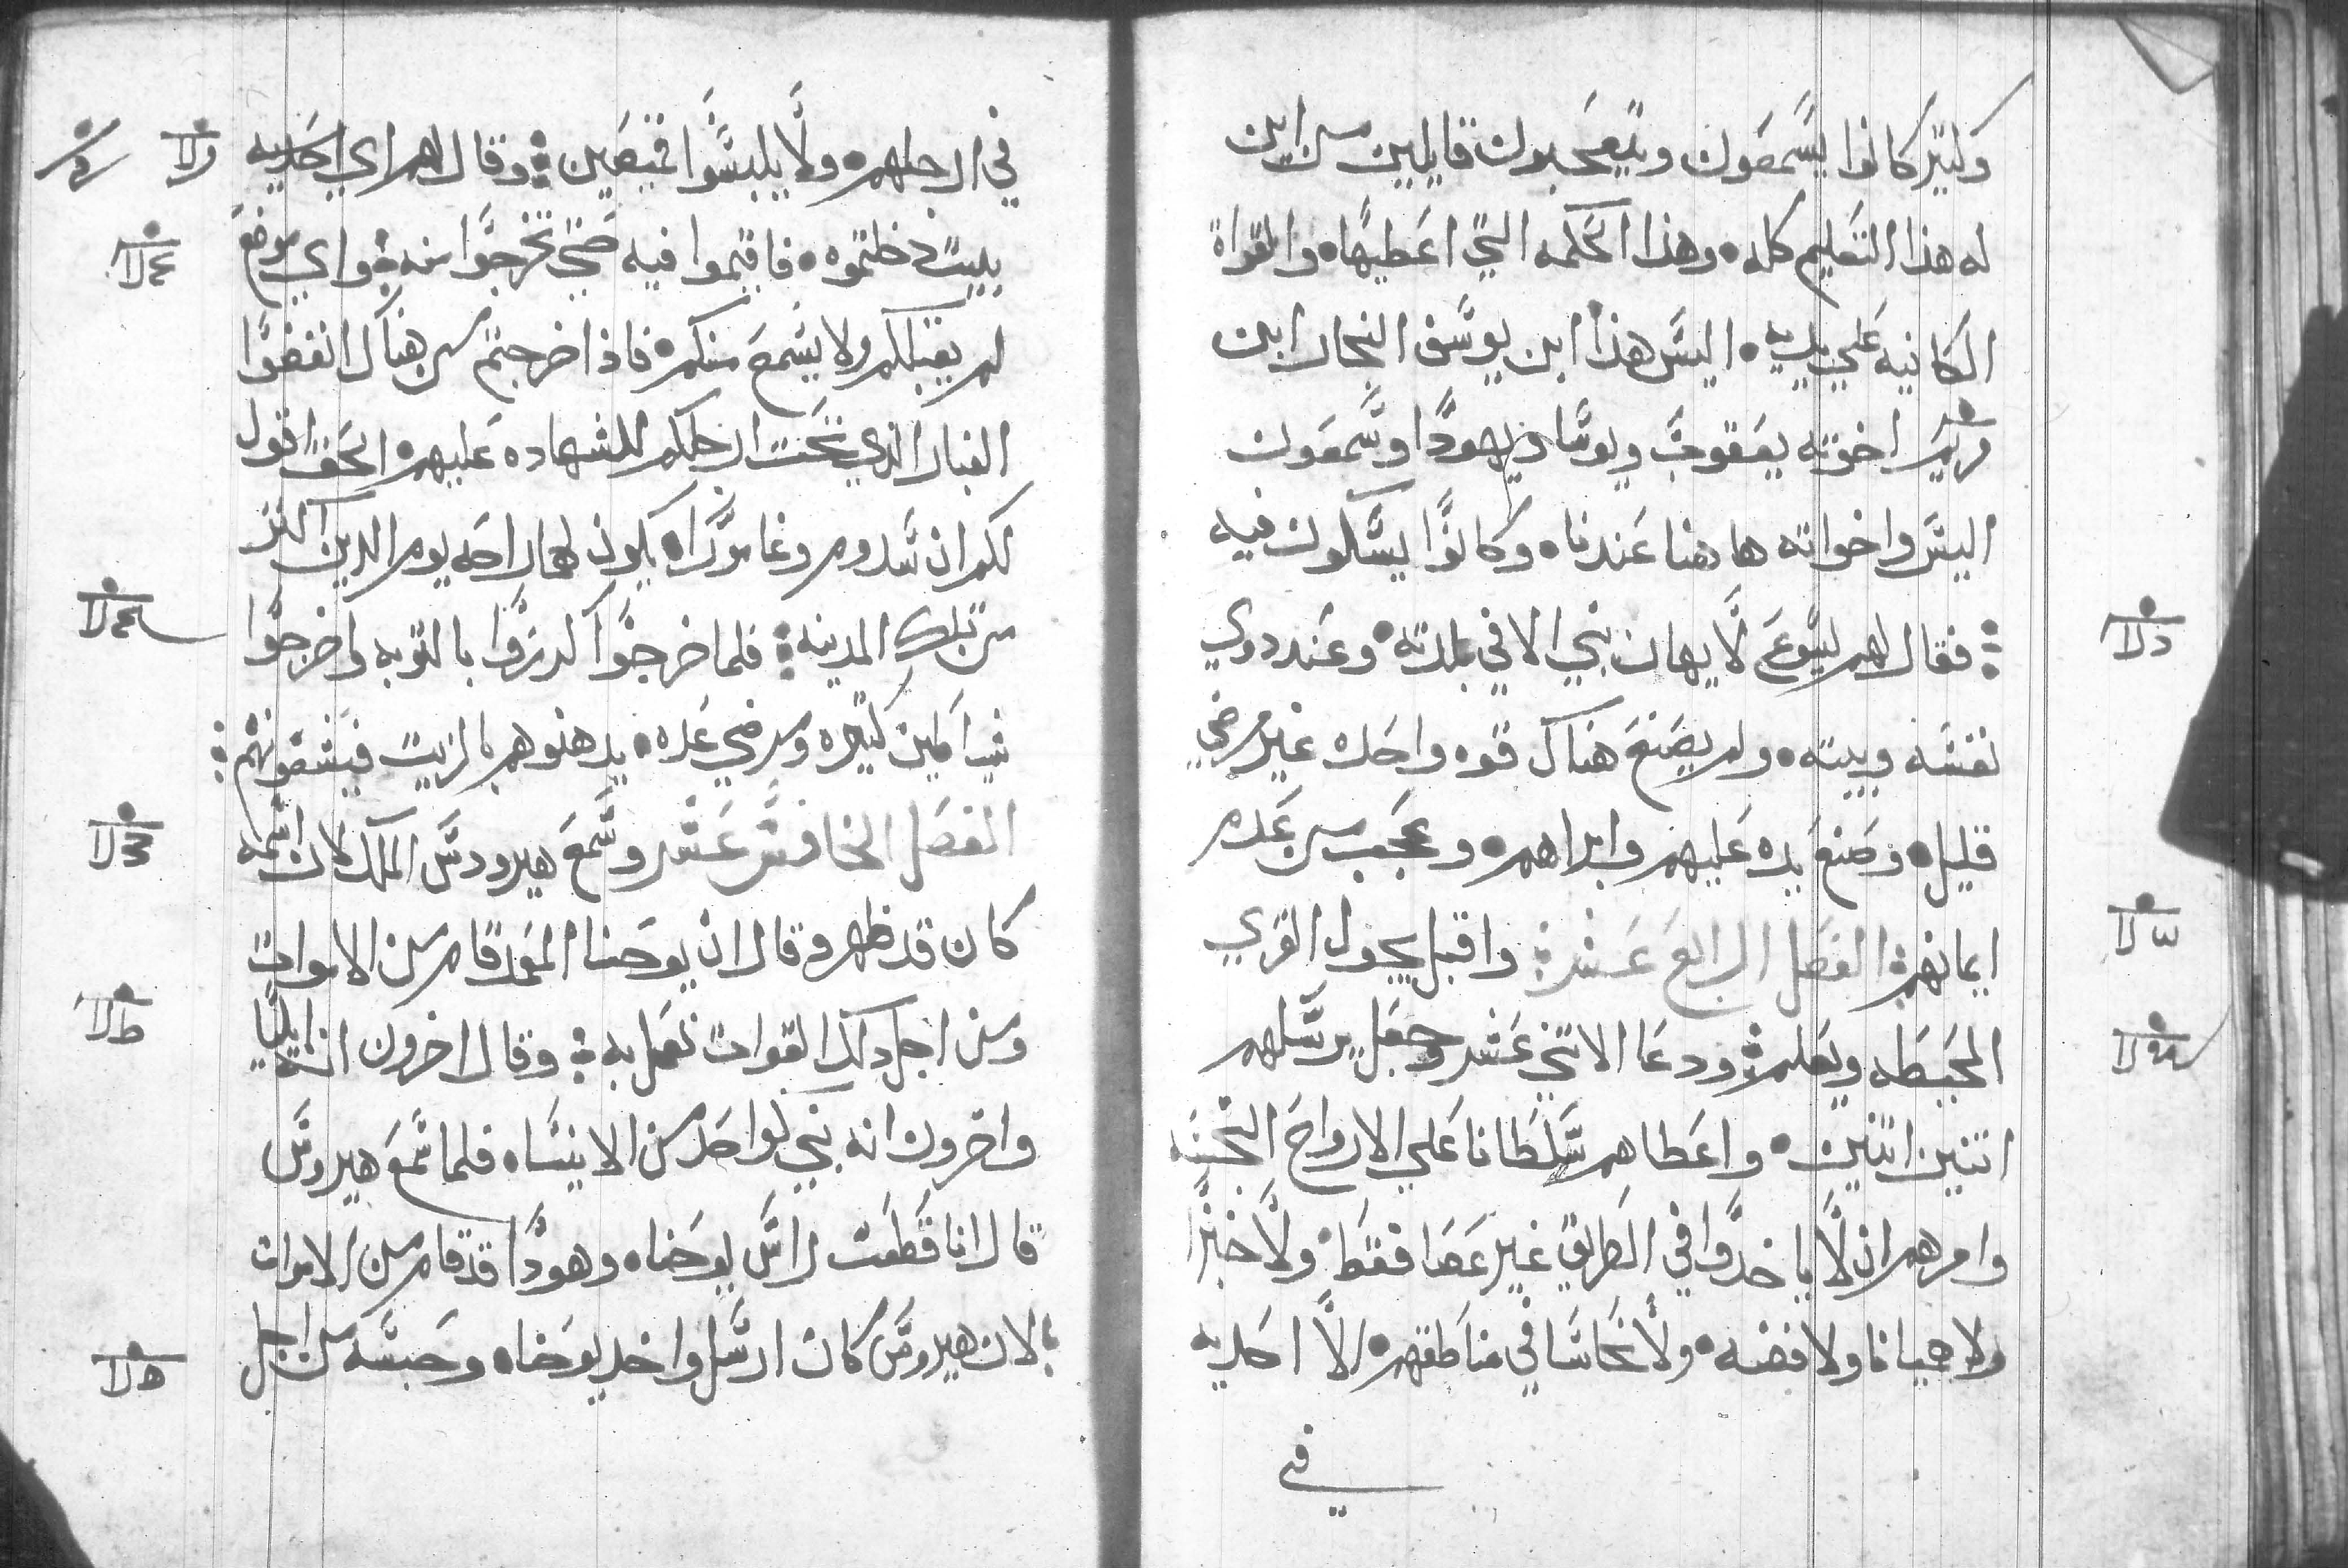 وكتير كانوا يسمعون ويتعجبون قايلين من اين
له هذا التعليم كله • وهذا الحكمه التي اعطيها • والقواة
الكانيه علي يديه • اليس هذا ابن يوسف النجار ابن
مريم اخوته يعقوب ويوسا ويهودا وسمعون
اليس واخواته هاهنا عندنا • وكانوا يسكون فيه
فقال لهم يسوع لا يهان نبي الا في بلدته • وعند دوي
نفسه وبيته • ولم يصنع هناك قوه واحده غير مرضي
قليل • وضع يده عليهم وابراهم • وعجب من عدم
ايمانهم الفصل الرابع عشر واقبل يجول القري
المحيطه ويعلم ودعا الاتني عشر وجعل يرسلهم
اتنين اتنين • واعطاهم سلطانا علي الارواح النجسه
وامرهم ان لا ياخدوا في الطريق غير عصا فقط • ولا خبزا
ولا هميانا ولا فضه • ولا نحاسا في مناطقهم • الا احديه
في
في ارجلهم • ولا يلبسوا قميصين وقال لهم اي
بيت دخلتموه • فاقيموا فيه حتي تخرجوا منه واي موضع
لم يقبلكم ولا يسمع منكم • فاذا خرجتم من هناك انفضوا
الغبار الذي تحت ارجلكم للشهاده عليهم • الحق اقول
لكم ان سدوم وغامورا • يكون لهما راحه يوم الدين اكتر
من تلك المدينه فلما خرجوا كرزوا بالتوبه واخرجوا
شياطين كتيره ومرضي عده • يدهنوهم بالزيت فيشفونهم
الفصل الخامس عشر وسمع هيرودس الملك لان اسمه
كان قد ظهر وقال ان يوحنا المعمد قام من الاموات
ومن اجل دلك القوات تعمل به وقال اخرون انه ايليا
واخرون انه نبي كواحد من الانبيا • فلما سمع هيرودس
قال انا قطعت راس يوحنا • وهودا قد قام من الاموات
لان هيرودس كان ارسل واخد يوحنا • وحبسه من اجل